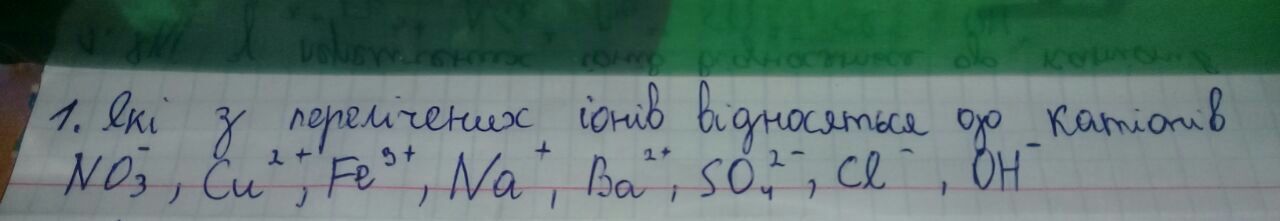 1. Які з перелічених іонів відносяться до катіонів
NO₃⁻, Cu²⁺, Fe³⁺, Na⁺, Ba²⁺, SO₄²⁻, Cl⁻, OH⁻